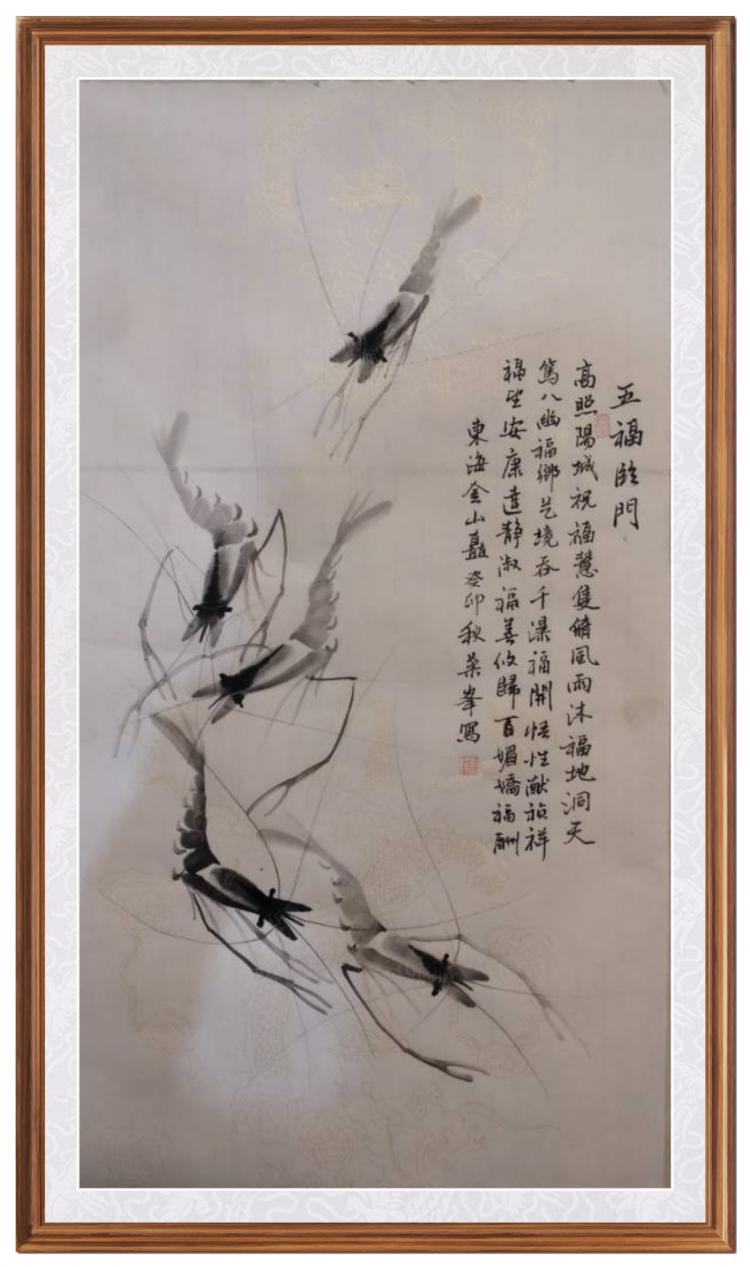 五福臨門
高照陽城祝福慧隻脩風雨沐福地洞天
篤八幽福鄉艺境吞千瀑福開悟性献祯祥
福生安康達靜淑福善攸歸百媚嬌福酬
東海金山矗癸卯秋葉峯寫